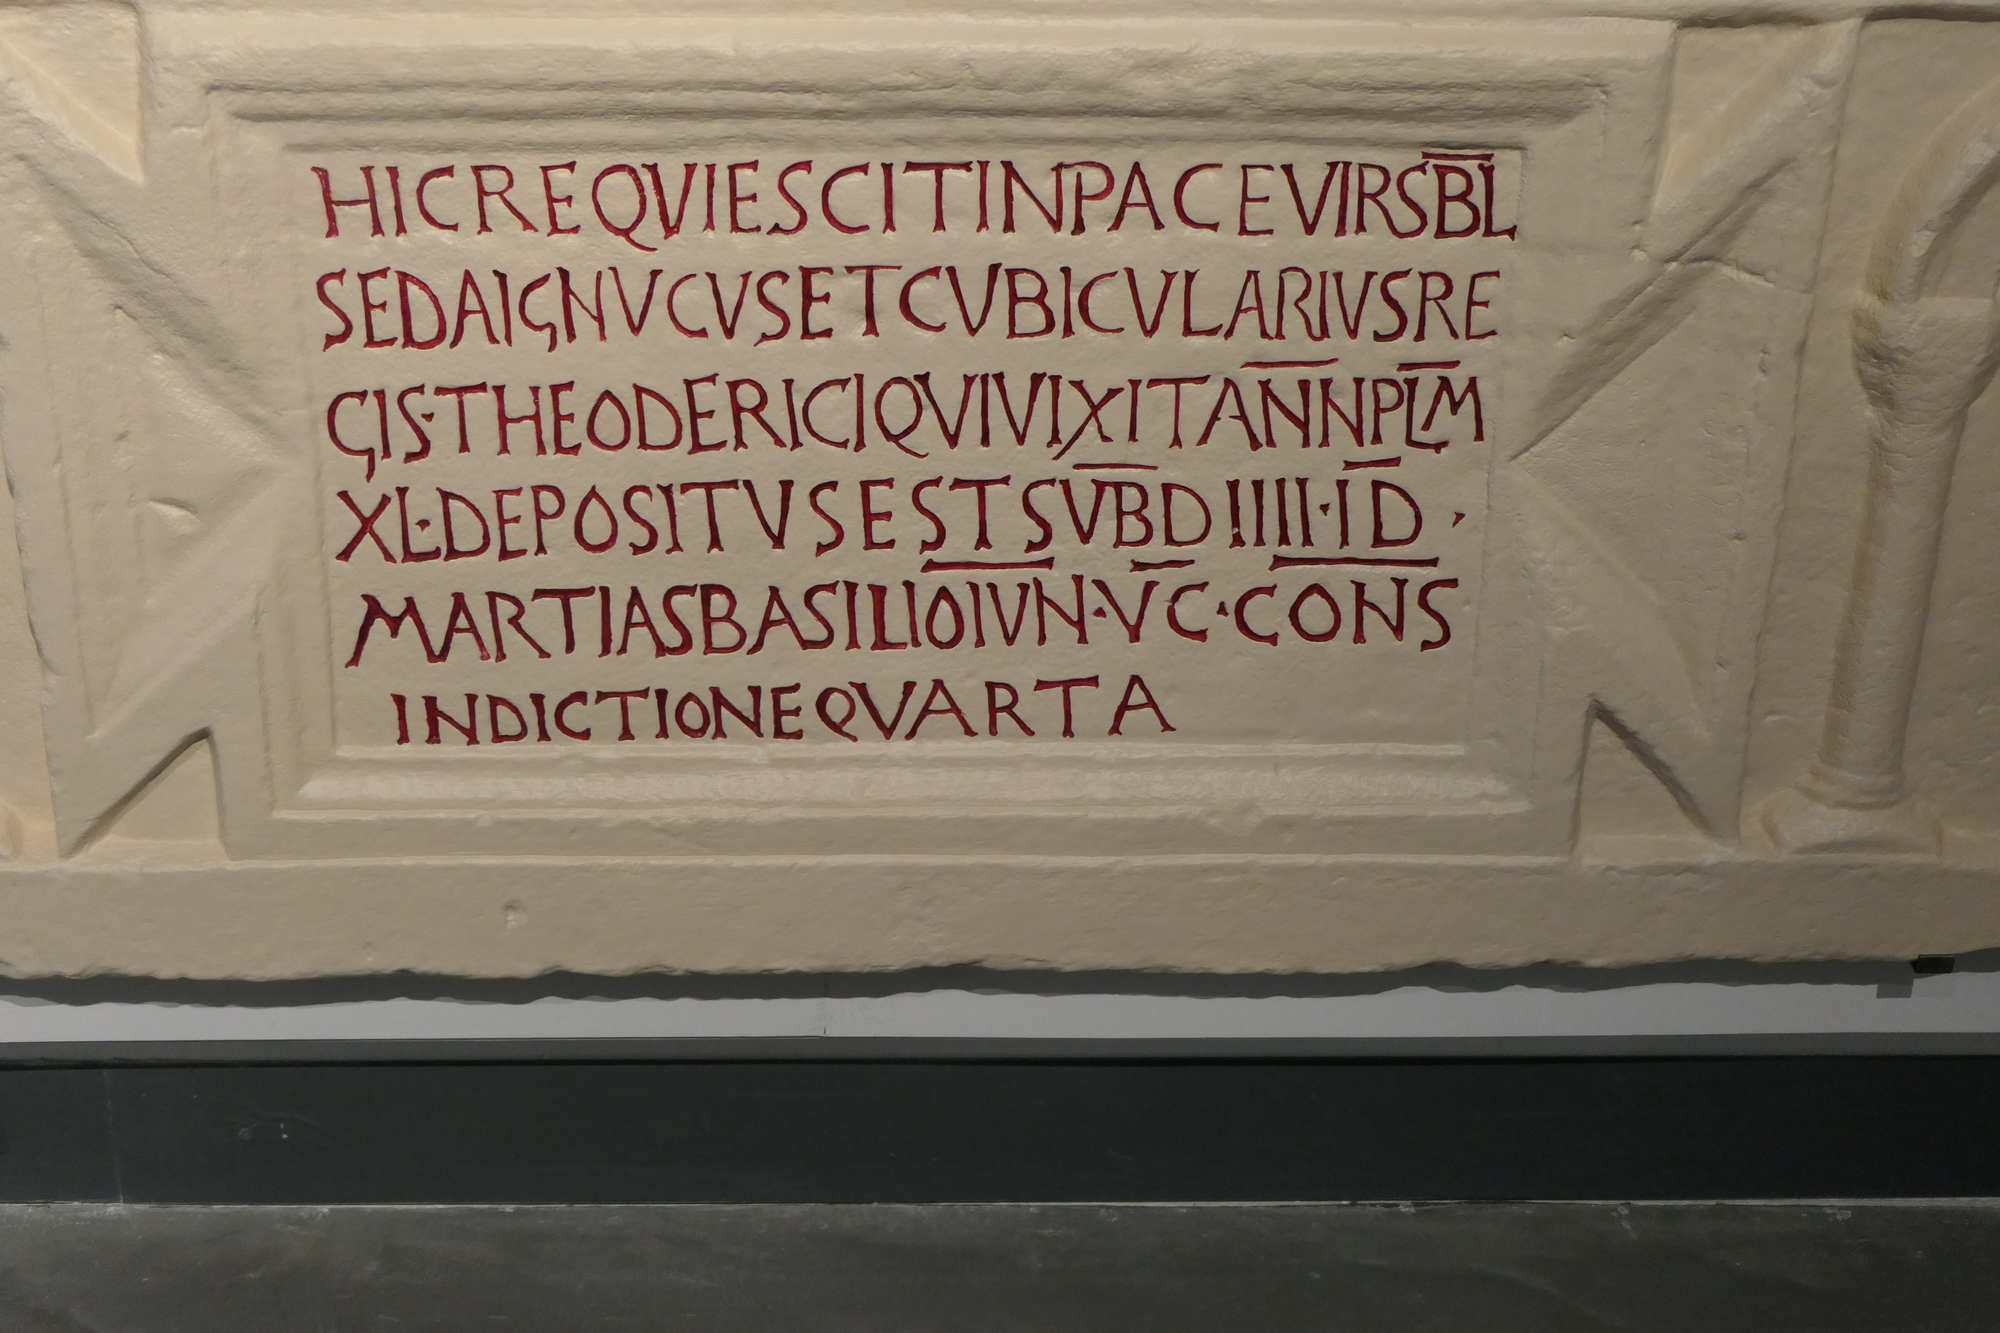 HICREQVIESCITINPACEVIRSB̅L
SEDAIGNVCVSETCVBICVLARIVSRE
GIS·THEODERICIQVIVIXITAN̅NPL̅M
XL·DEPOSITVSESTSVB̅DIIII·I̅D·
MARTIASBASILIO̅I̅V̅N·V̅C·C̅O̅N̅S
INDICTIONEQVARTA